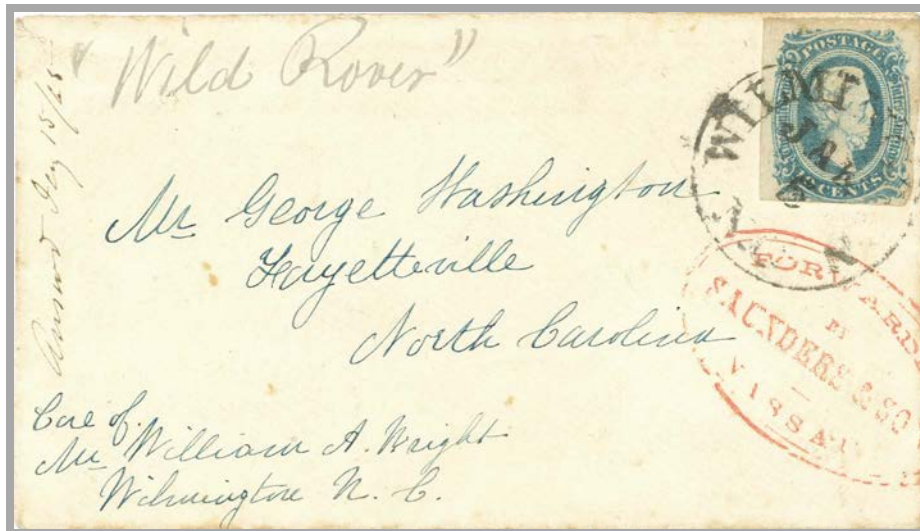 "Wild Rover"
POSTAGE
CENTS
WILMI
JAN
Mr George Washington
Fayetteville
North Carolina
FORWARD
BY
SAUNDERS & SO
NASSAU
Care of
Mr William A. Wright
Wilmington N. C.